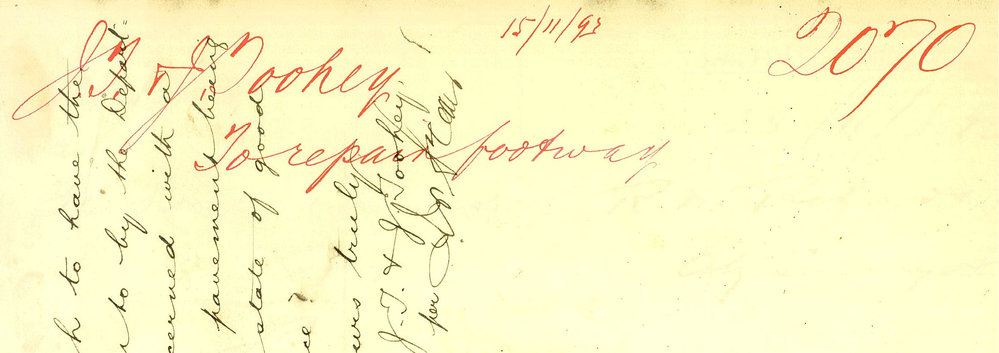 15/11/93
2070
J.T. & J. Toohey
To repair footway
h to have the
to by the Depart
erned with a
pavement being
state of good
ce.
urs truly
J. T. & J. Toohey.
per